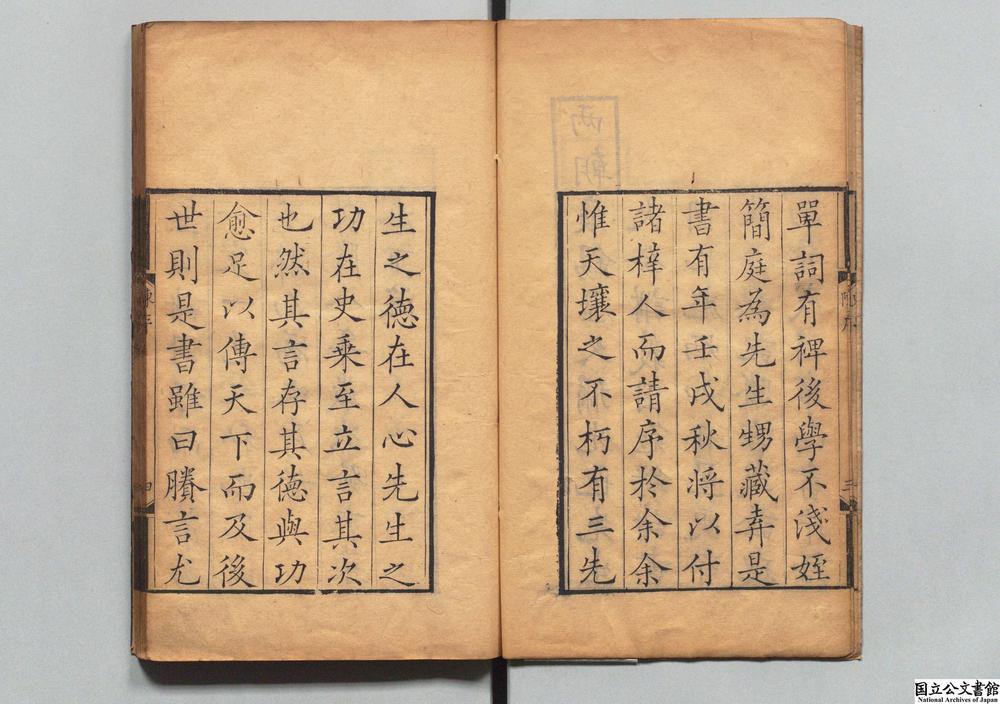 單詞有裨後學不淺姪
簡庭為先生甥藏弆是
書有年壬戌秋将以付
諸梓人而請序於余余
惟天壤之不朽有三先
生之德在人心先生之
功在史乗至立言其次
也然其言存其德與功
愈足以傳天下而及後
世則是書雖曰賸言尤
三
四
国立公文書館
National Archives of Japan